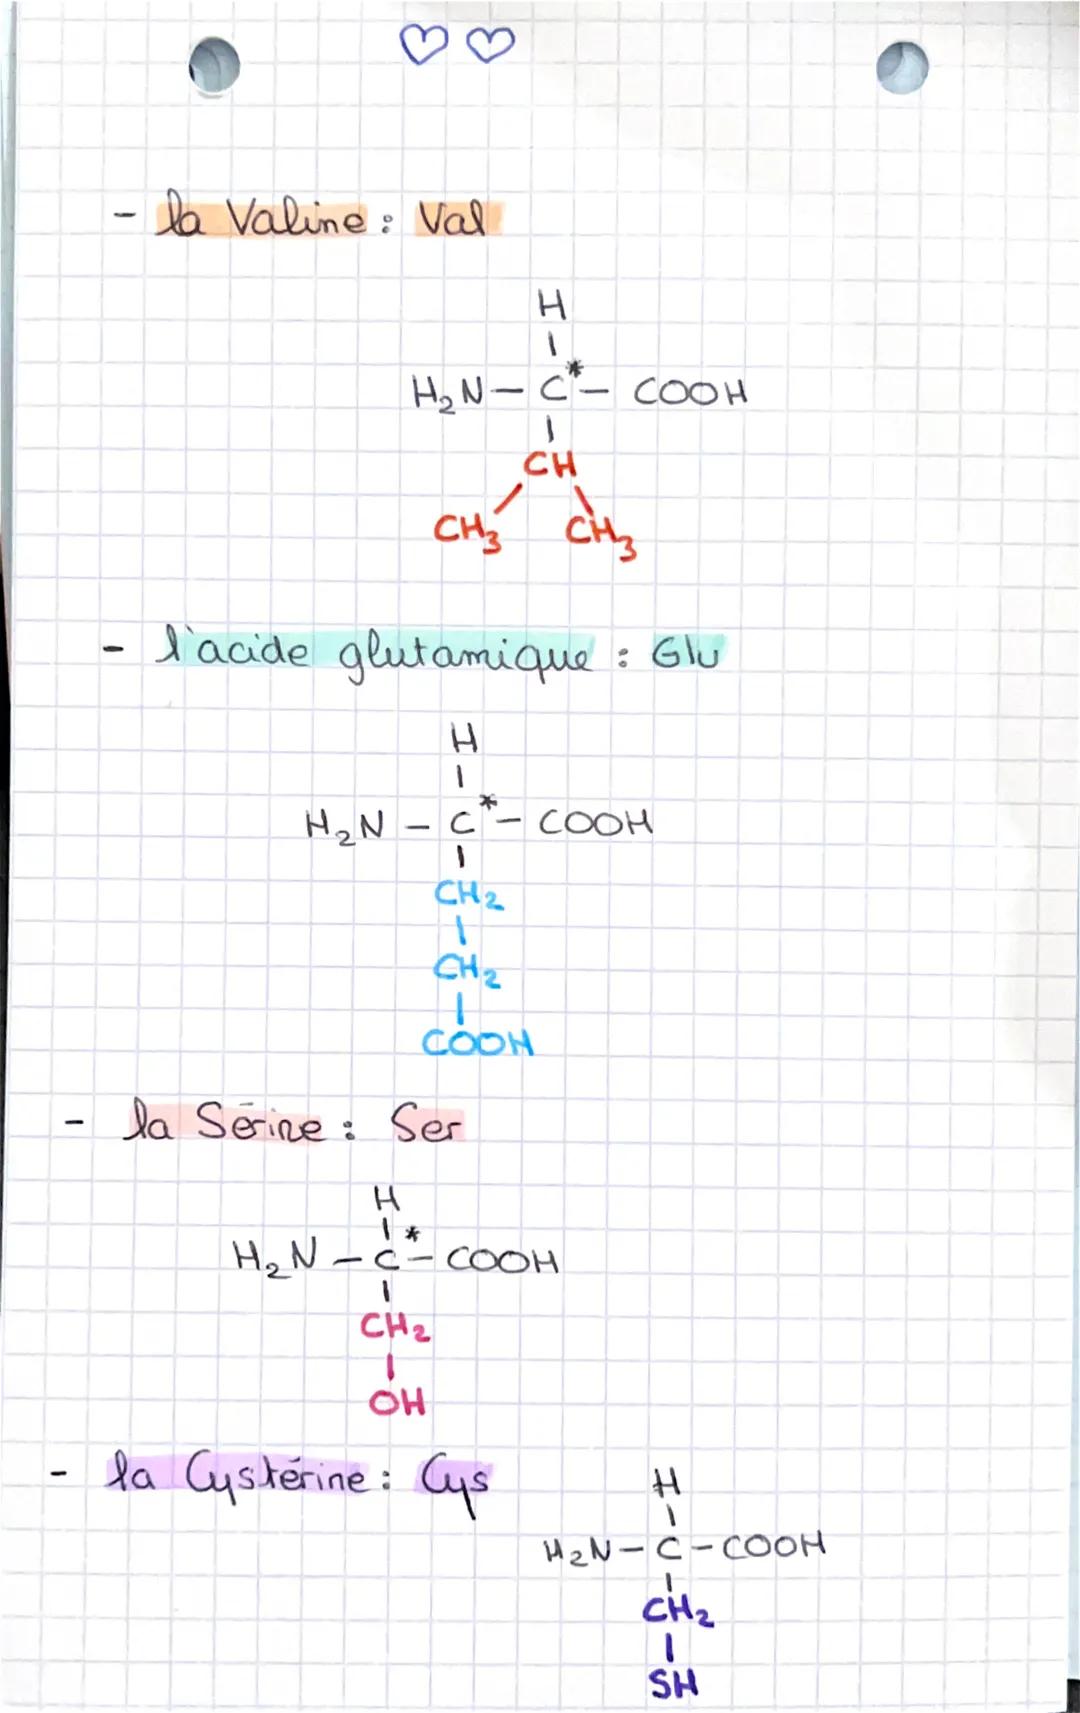 - la Valine : Val
H
H₂N - C* - COOH
CH
CH₃ CH₃
- l'acide glutamique : Glu
H
H₂N - C* - COOH
CH₂
CH₂
COOH
- la Sérine : Ser
H
H₂N - C* - COOH
CH₂
OH
- la Cystérine : Cys
H
H₂N - C - COOH
CH₂
SH